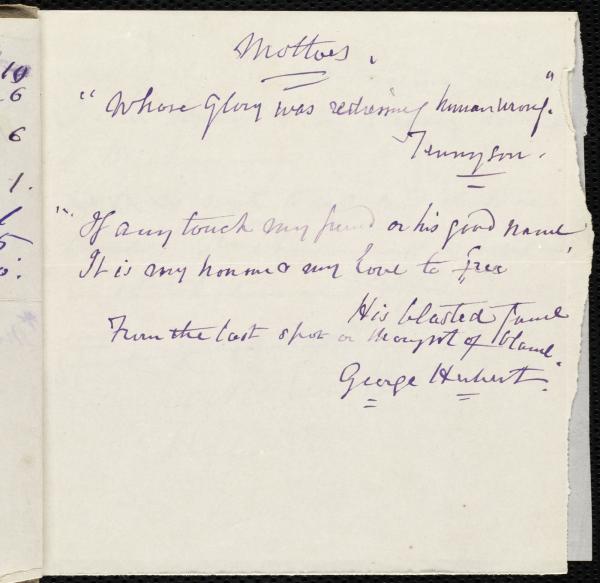 19
6
6
1.
Mottoes.
"Whose Glory was redressing human wrong."
Tennyson.
"If any touch my friend or his good name
It is my honour & my love to free
His blasted fame
From the last spot or thought of blame.
George Herbert.